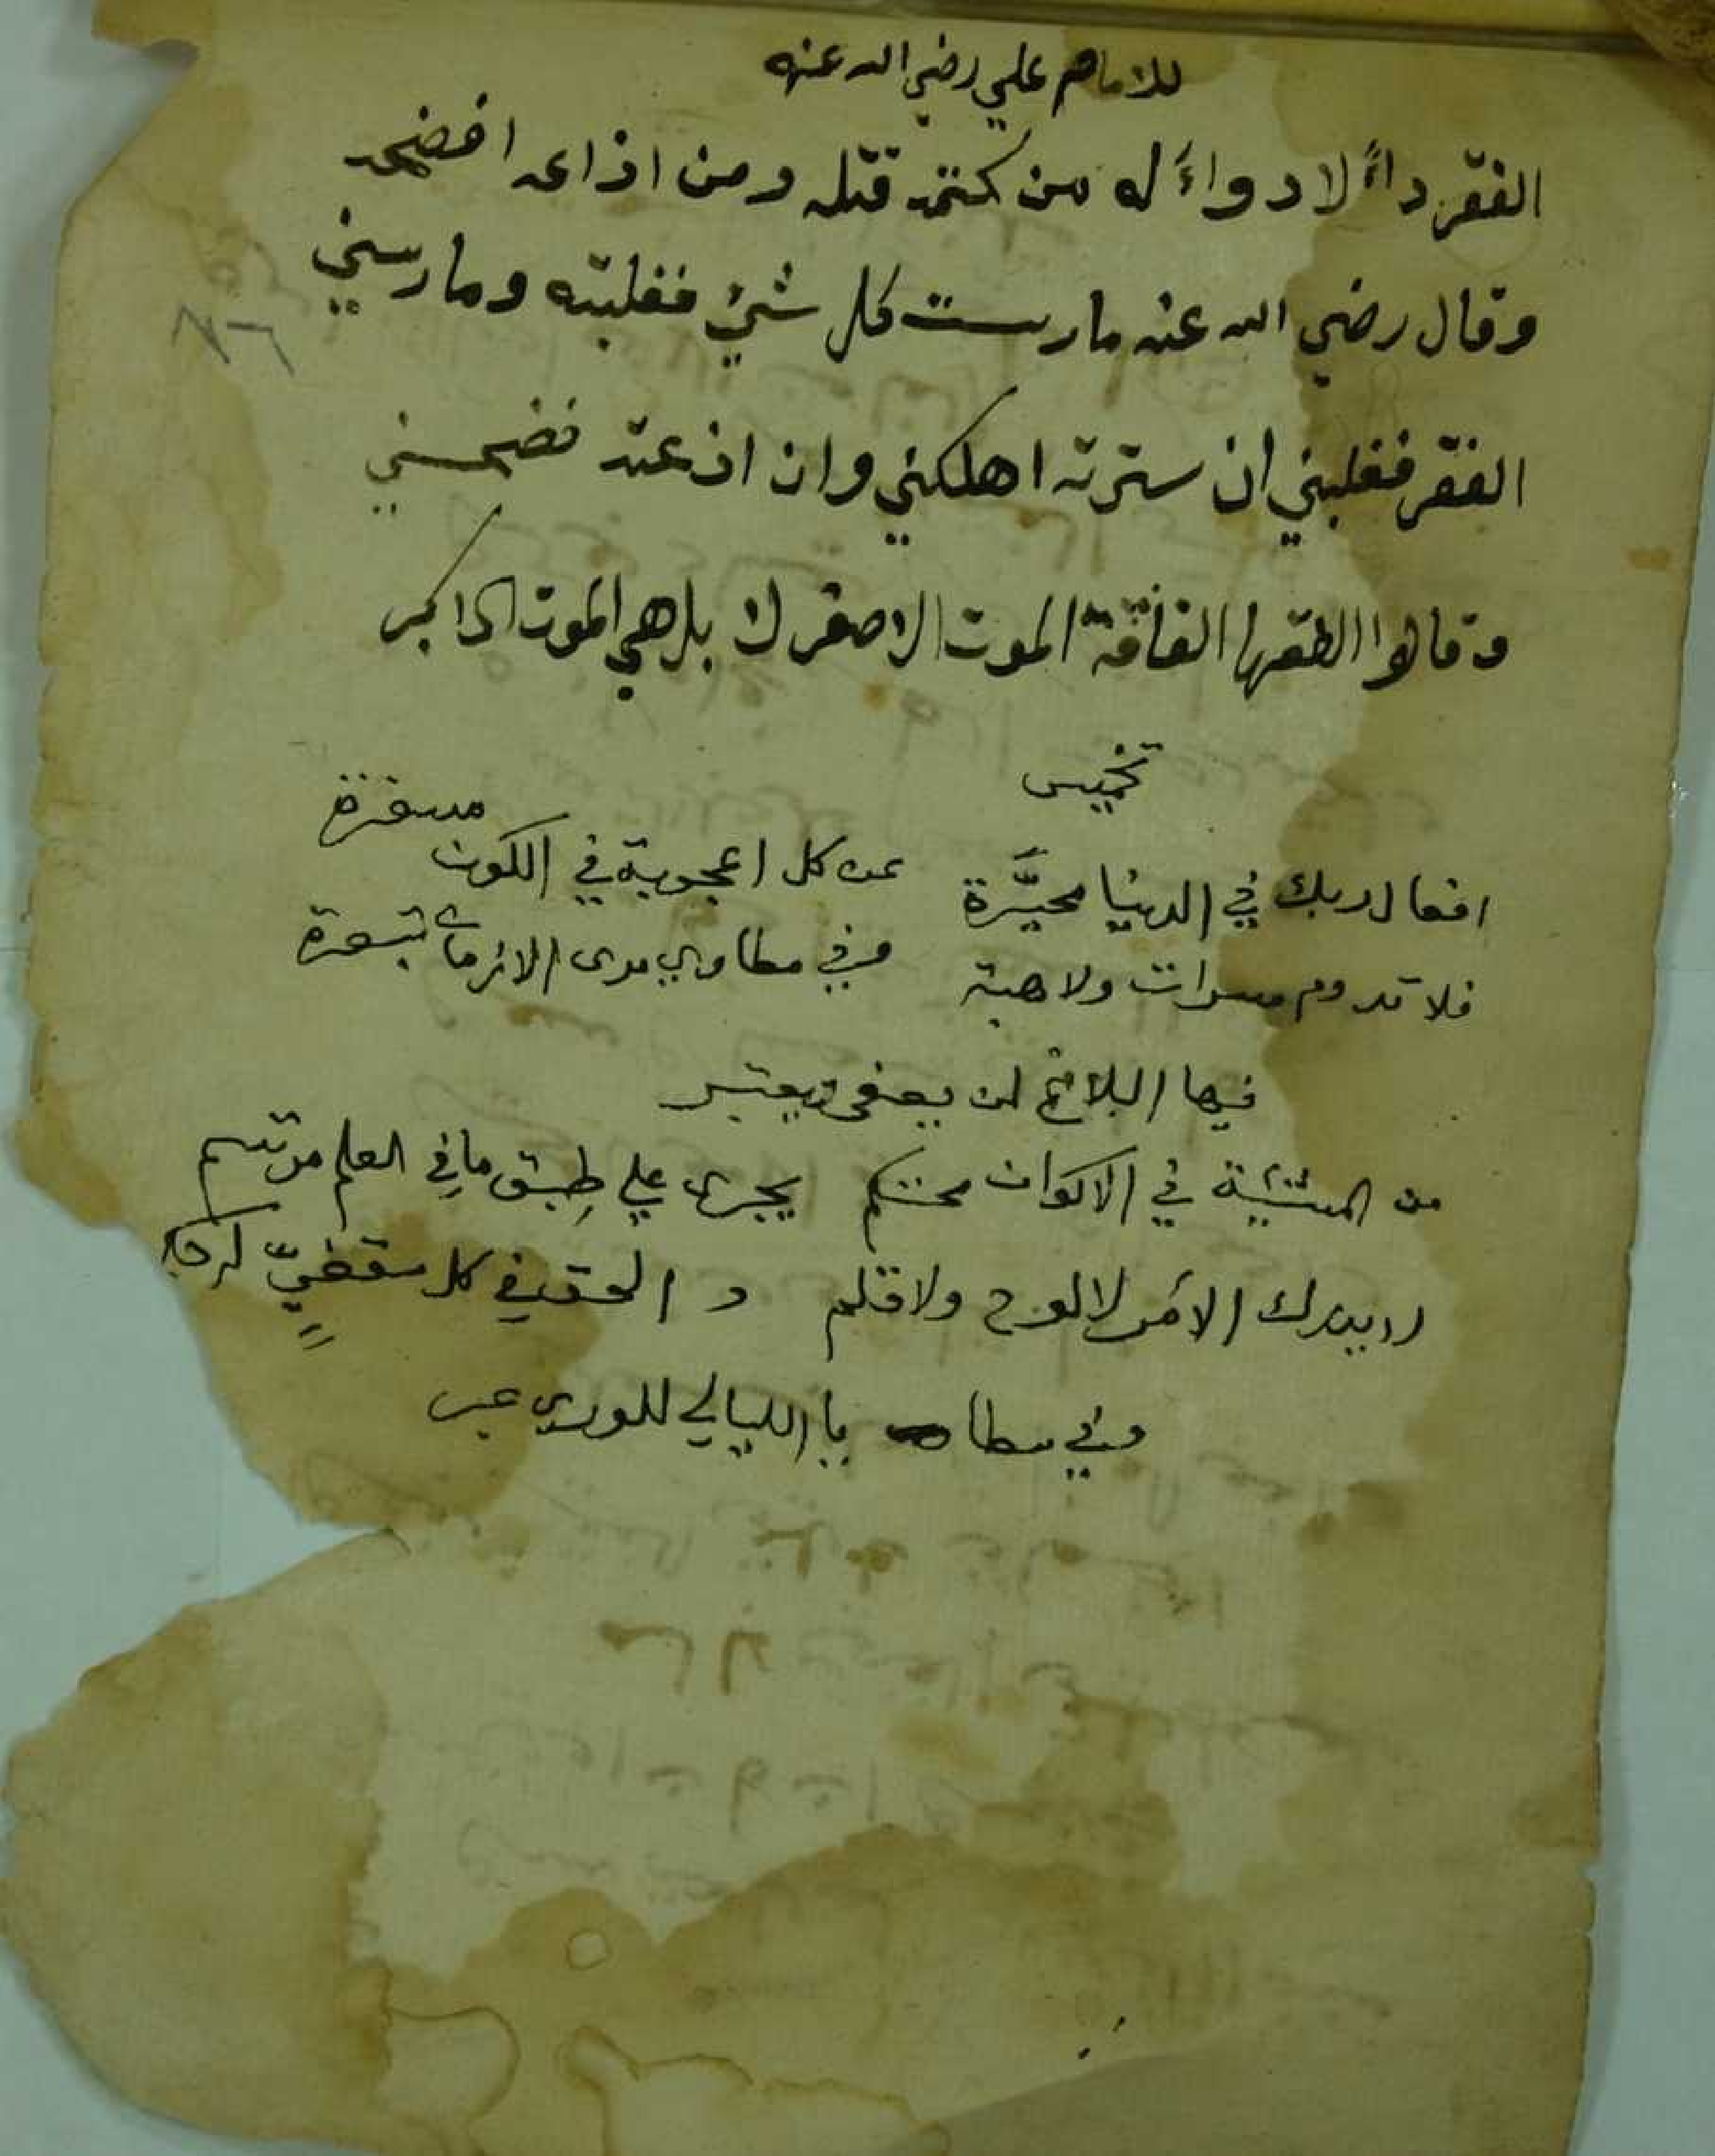 للامام علي رضي الله عنه
الفقر داءً لا دواءَ له من كتمه قتله ومن اذاعه افضحه
وقال رضي الله عنه مارست كل شيئ فغلبته ومارسني
الفقر فغلبني ان سترته اهلكني وان اذعته فضحني
وقالوا الفاقة الموت الاصغر لا بل هي الموت الاكبر
تخميس
افعال ربك في الدنيا محيَّرة عن كل اعجوبة في الكون مسفرة
فلا تدوم مسرات ولا هبة وفي مطاوي مدى الازمان تبصرة
فيها البلاغ لمن يصغى ويعتبر
من المشيئة في الاكوان محتكم يجرى علي طِبق ما في العلم مرتسم
لا يدرك الأمر لا لوح ولا قلم و الحق في كل مقضيٍّ له
وفي مطا يا الليالي للورى عبر